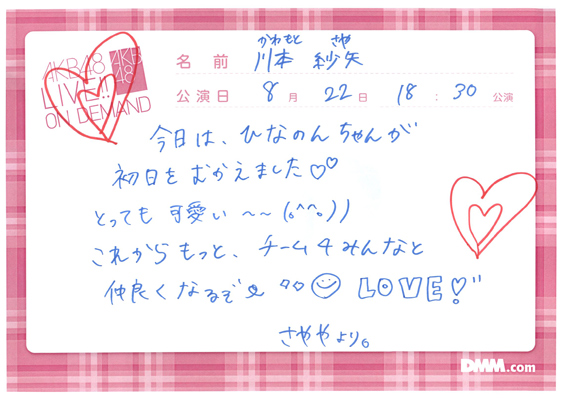 AKB48
LIVE!!
ON DEMAND
AKB
48
かわもと さや
名前 川本 紗矢
公演日 8月 22日 18:30 公演
今日は、ひなのんちゃんが
初日をむかえました♡♡
とっても可愛い〜〜(。^^。))
これからもっと、チーム4みんなと
仲良くなるぞ LOVE!"
さややより。
DMM.com